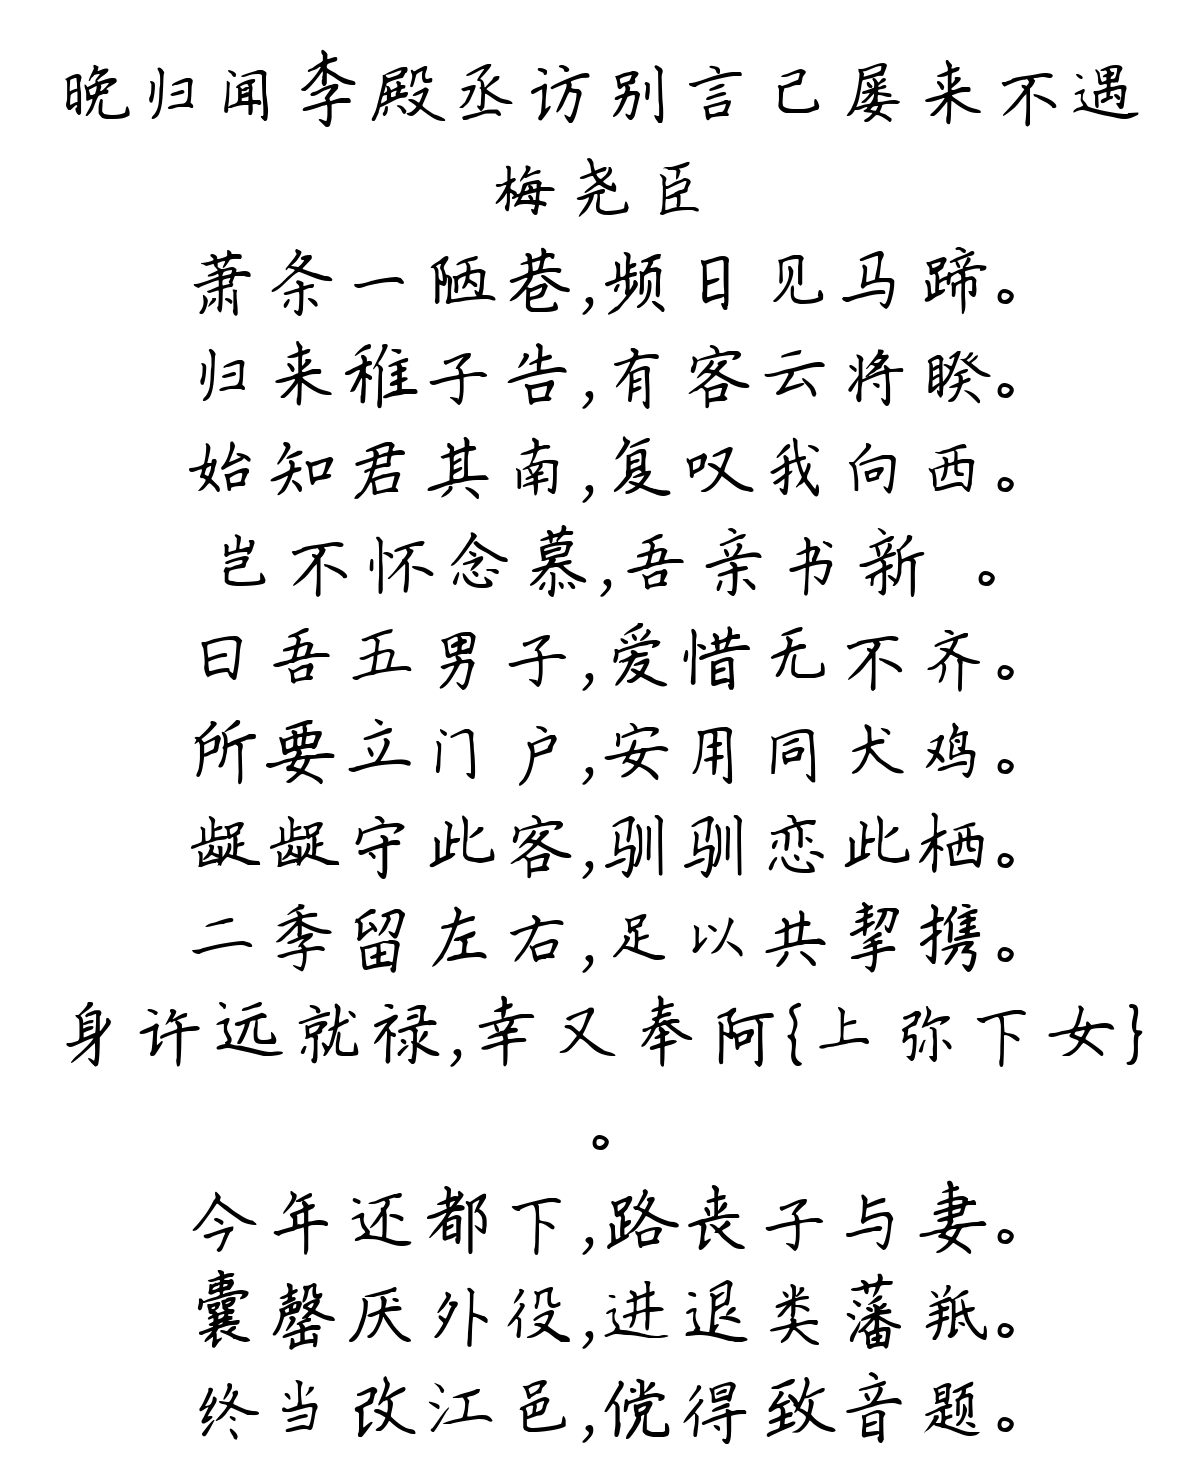 晚归闻李殿丞访别言己屡来不遇
梅尧臣
萧条一陋巷,频日见马蹄。
归来稚子告,有客云将睽。
始知君其南,复叹我向西。
岂不怀念慕,吾亲书新 。
曰吾五男子,爱惜无不齐。
所要立门户,安用同犬鸡。
龊龊守此客,驯驯恋此栖。
二季留左右,足以共挈携。
身许远就禄,幸又奉阿{上弥下女}
。
今年还都下,路丧子与妻。
囊罄厌外役,进退类藩羝。
终当改江邑,傥得致音题。